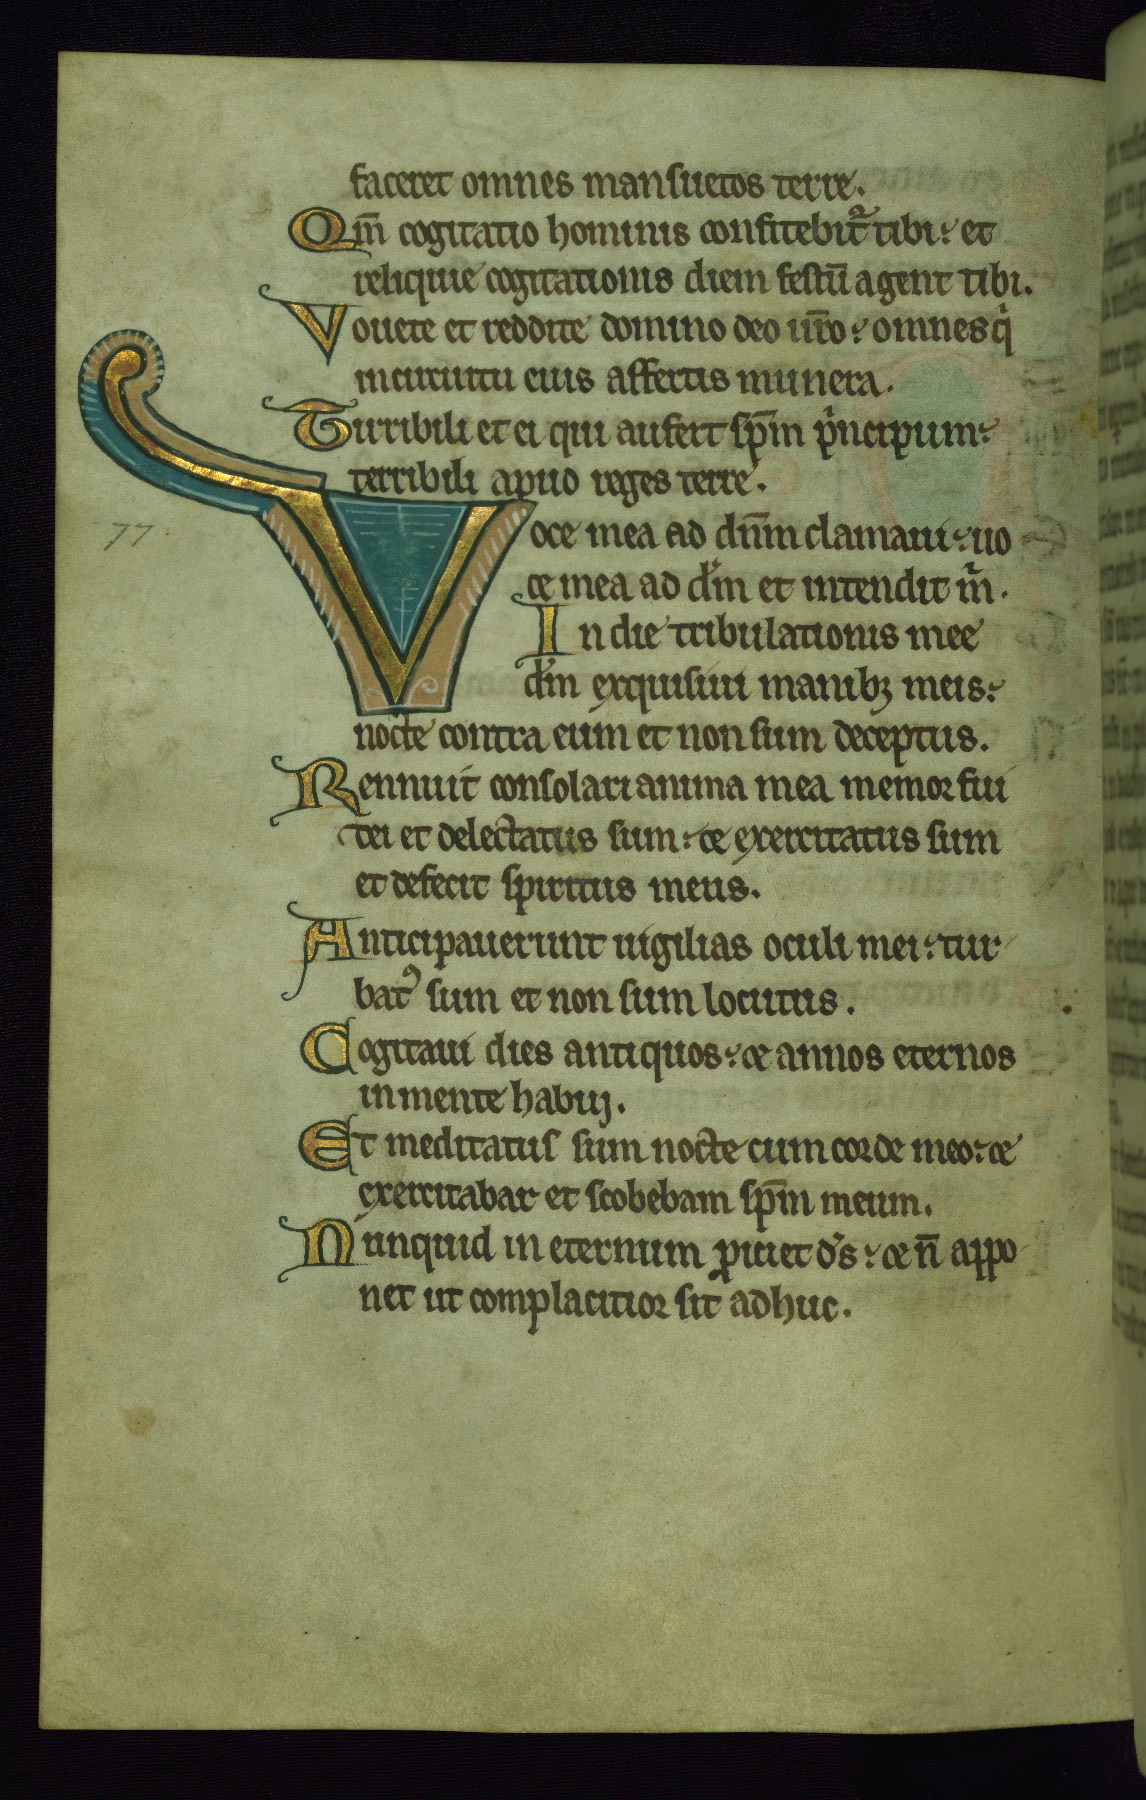 faceret omnes mansuetos terre.
Qm̄ cogitatio hominis confitebit᷑ tibi: et
reliquie cogitationis diem festū agent tibi.
Vouete et reddite domino deo ur̄o: omnes qi
in circuitu eius affertis munera.
Tirribili et ei qui aufert sp̄m pincipum:
terribili apud reges terre.
77.
Voce mea ad dn̄m clamaui: uo
ce mea ad dm̄ et intendit m̄.
In die tribulationis mee
dm̄ exquisiui manibꝫ meis:
nocte contra eum et non sum deceptus.
Rennuit consolari anima mea memor fui
dei et delectatus sum: et exercitatus sum
et defecit spiritus meus.
Anticipauerunt uigilias oculi mei: tur
batꝰ sum et non sum locutus.
Cogitaui dies antiquos: et annos eternos
in mente habuj.
Et meditatus sum nocte cum corde meo: et
exercitabar et scobebam sp̄m meum.
Nunquid in eternum ꝓiciet ds: et n̄ appo
net ut complacitior sit adhuc.